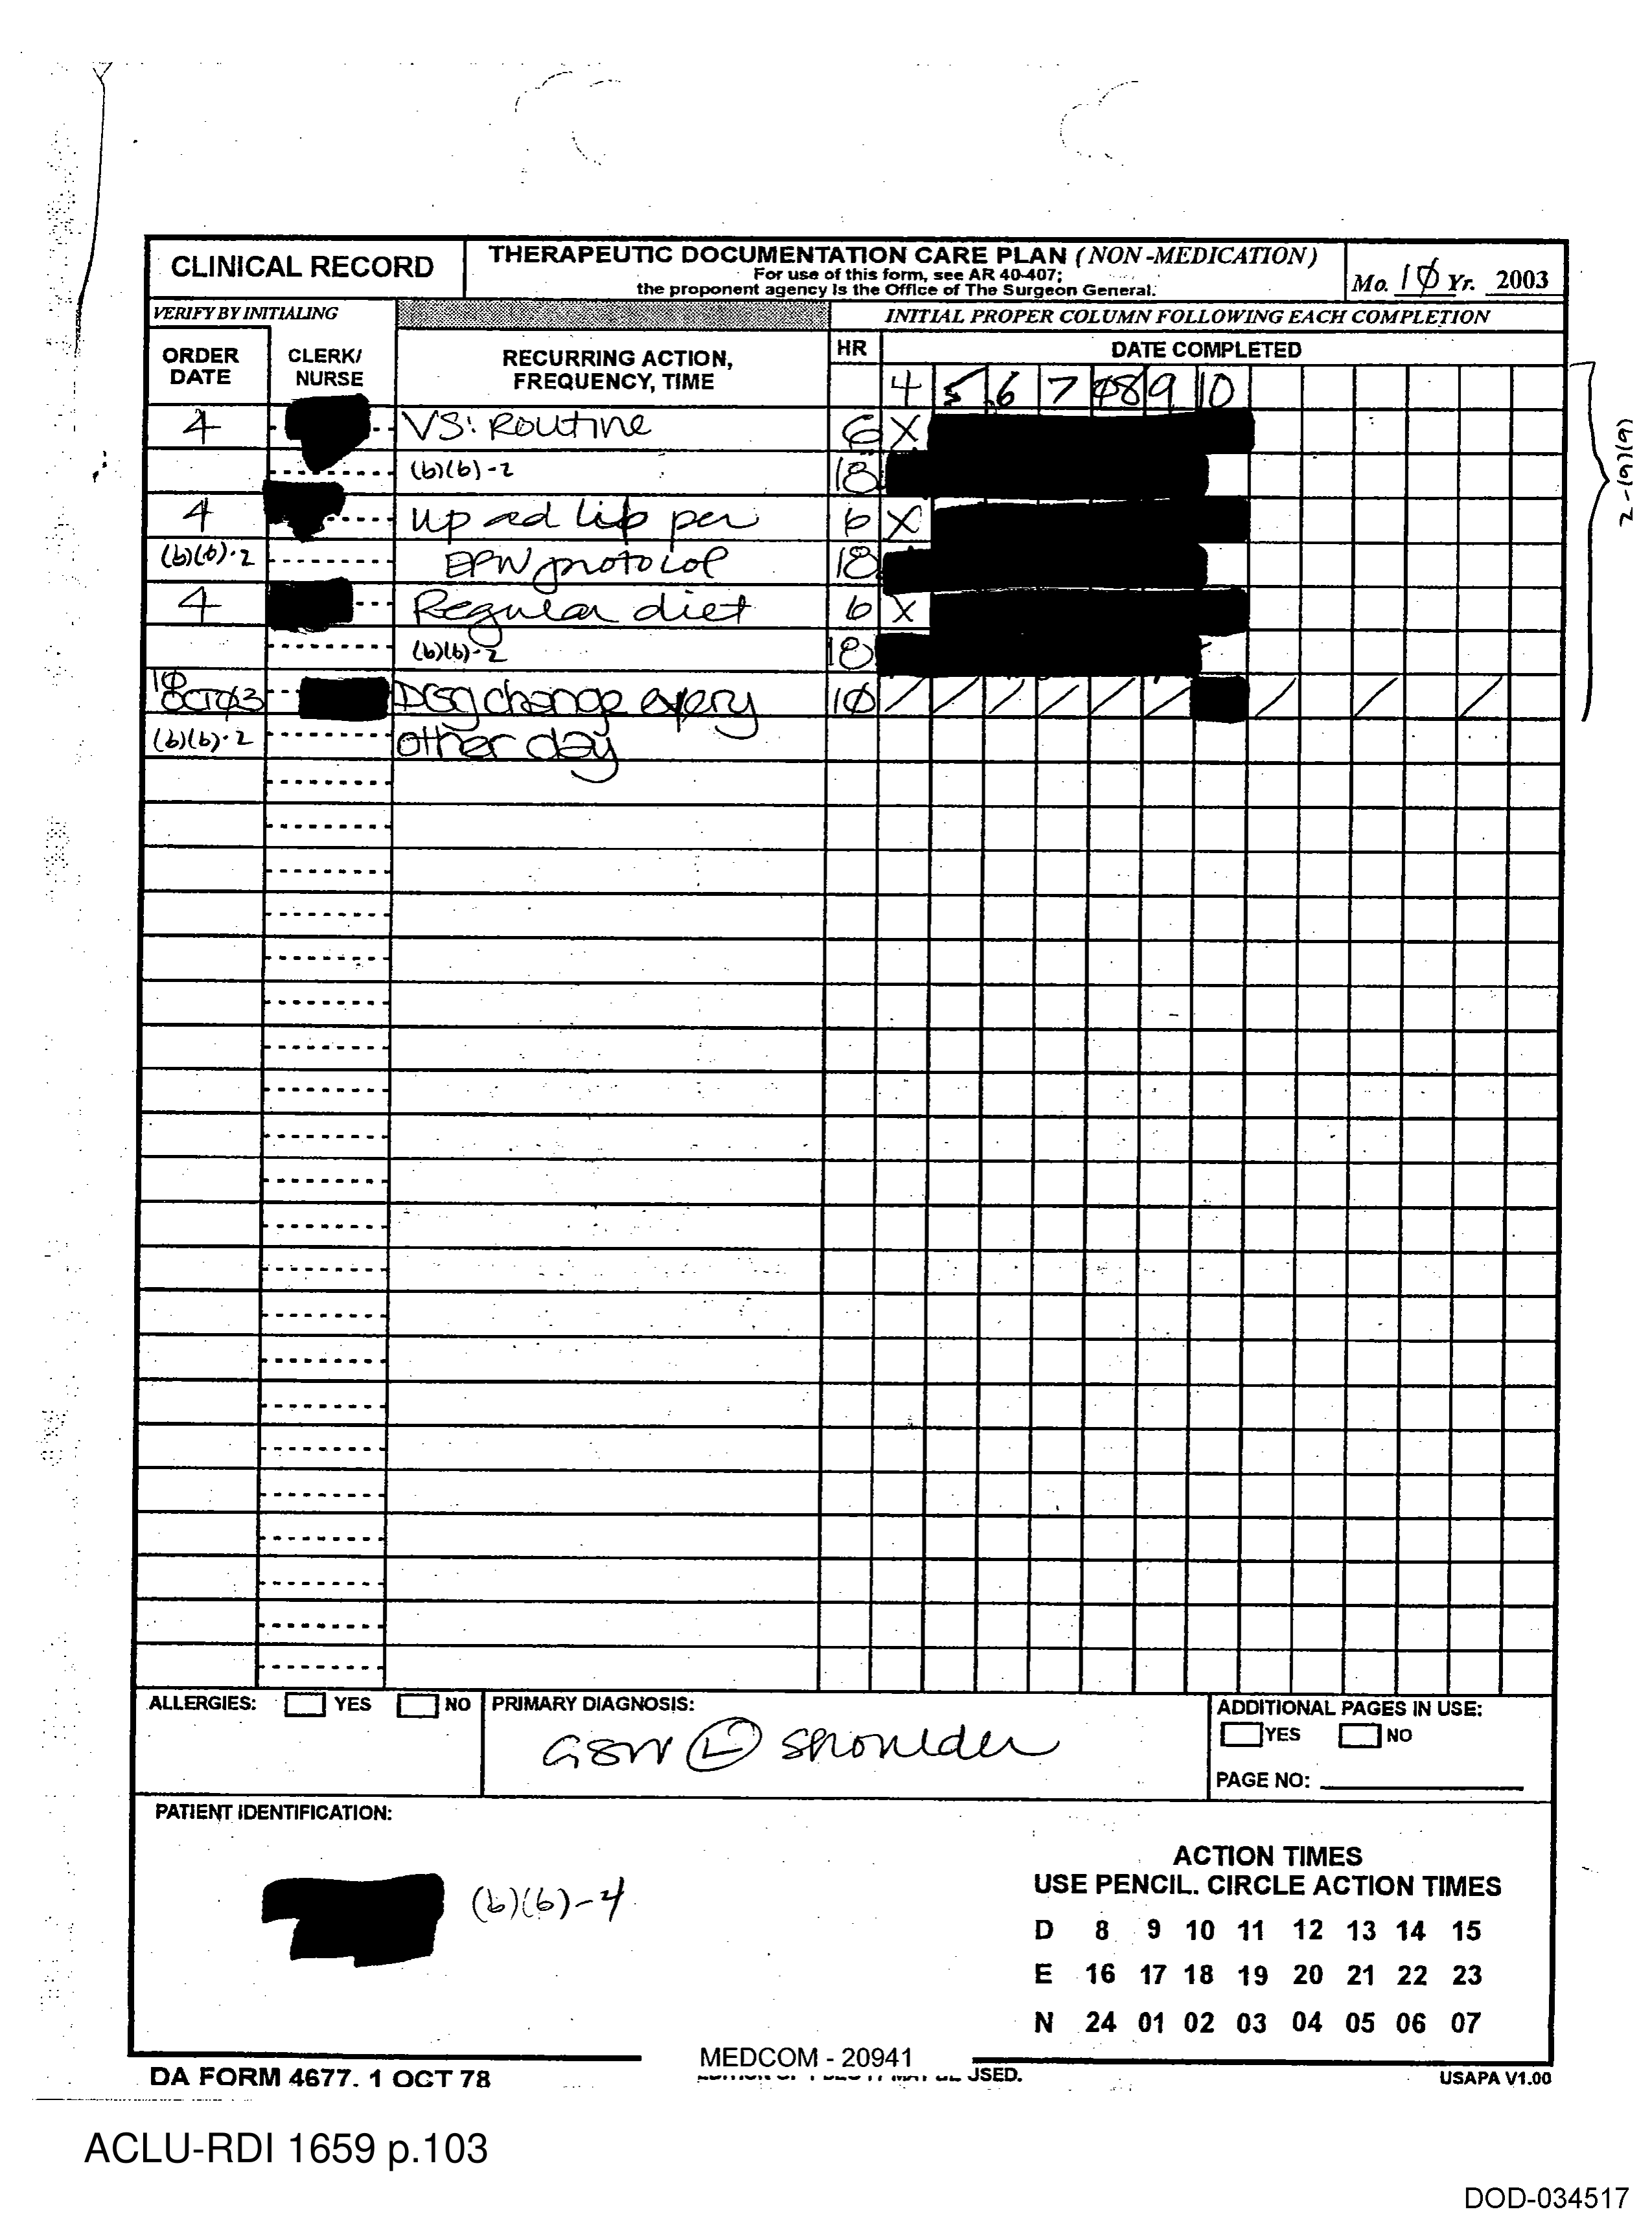 CLINICAL RECORD
THERAPEUTIC DOCUMENTATION CARE PLAN (NON-MEDICATION)
For use of this form, see AR 40-407;
the proponent agency is the Office of The Surgeon General.
Mo. 1Ø Yr. 2003
VERIFY BY INITIALING
INITIAL PROPER COLUMN FOLLOWING EACH COMPLETION
ORDER DATE
CLERK/ NURSE
RECURRING ACTION, FREQUENCY, TIME
HR
DATE COMPLETED
4 5 6 7 Ø8 9 10
4 VS: Routine 6 X
(b)(6)-2 18
4 up ad lib per 6 X
(b)(6)-2 EPW protocol 18
4 Regular diet 6 X
(b)(6)-2 18
1Ø OCTØ3 DSg change every 1Ø / / / / / / / / /
(b)(6)-2 other day
2-(a)(9)
ALLERGIES: YES NO
PRIMARY DIAGNOSIS:
GSW Ⓛ shoulder
ADDITIONAL PAGES IN USE:
YES NO
PAGE NO:
PATIENT IDENTIFICATION:
(b)(6)-4
ACTION TIMES
USE PENCIL. CIRCLE ACTION TIMES
D 8 9 10 11 12 13 14 15
E 16 17 18 19 20 21 22 23
N 24 01 02 03 04 05 06 07
MEDCOM - 20941
DA FORM 4677. 1 OCT 78
USED.
USAPA V1.00
ACLU-RDI 1659 p.103
DOD-034517